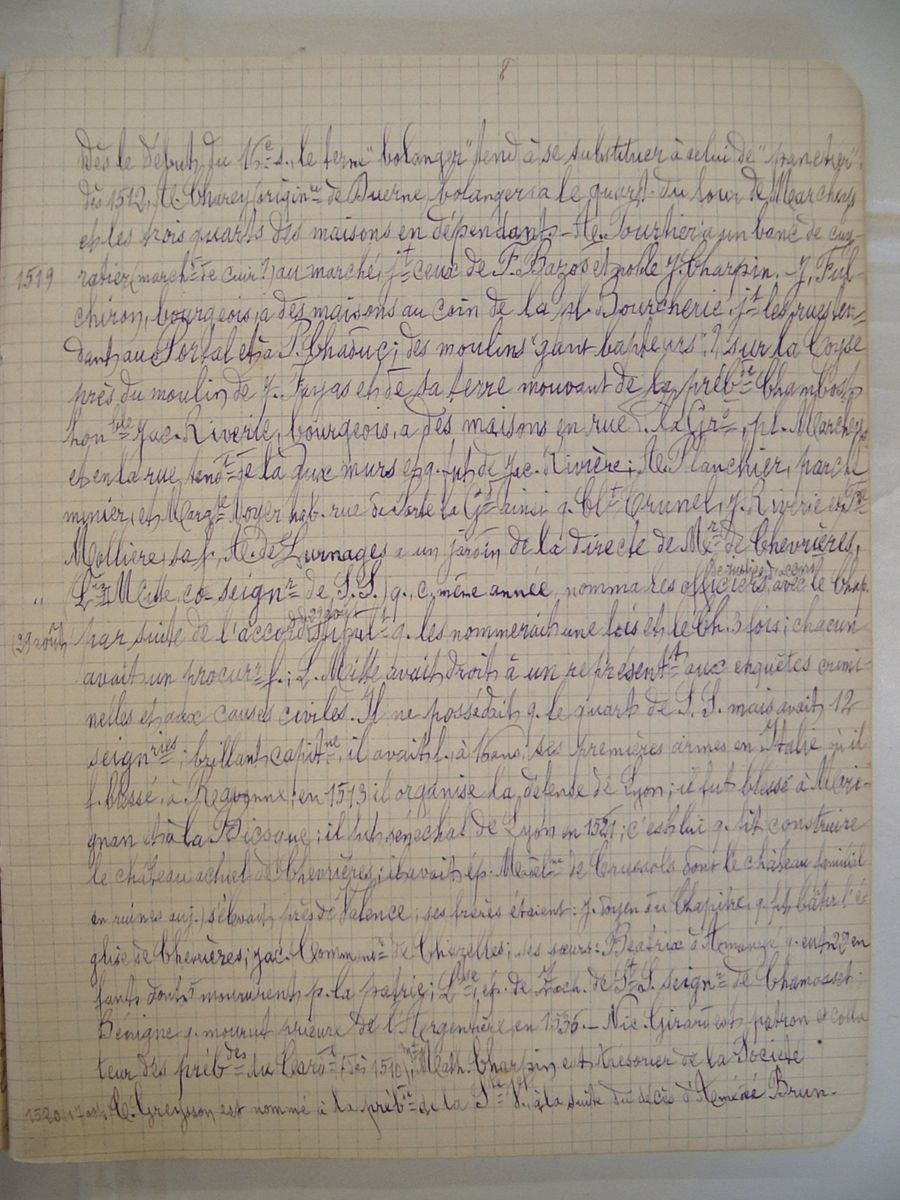 8
Dès le début du 16e s. le term "bolanger" tend à se substituer à celui de "panetier".
dès 1512, Charey origin.re de Duerne, bolanger, a le quart du four de Marchenys
et les trois quarts des maisons en dépendant - a un banc de cuy-
1519 ratier (march.t de cuir ?) au marché, j.t ceux de F. Bazos et noble J. Charpin. - J. Ful-
chiron, bourgeois, a des maisons au coin de la pl. Bourcherie, j.t les rues ten-
dant au Portal et à P. Chaduc; des moulins "gant batteurs" ? sur la Coyse
près du moulin de J. Fayas et de sa terre mouvant de la préb.de Chambost
hon.ble Jac. Riverie, bourgeois, a des maisons en rue , pl.
et en la rue tend.t de là aux murs et q. fut de Jac. Rivière; Planchier, parche
minier, et Marg.te Noyer hab. rue de Porte la ainsi q. Brunel, J. Riverie
Mollière sa f. de Lurnages a un jardin de la directe de Mr de Chevrières,
" L. Mitte, co-seign.r de S. S.) q. c. même année, nomma les officiers avec le Chap.
29 août par suite de l'accord du 29 août q. les nommerait une fois et le Ch. 3 fois; chacun
avait un procur.r f.; L. Mitte avait droit à un représent.t aux enquêtes crimi-
nelles et aux causes civiles. Il ne possédait q. le quart de S. S. mais avait 12
seign.ries; brillant capit.ne, il avait f. à 16 ans, ses premières armes en Italie où il
f. blessé à en 1513 il organise la défense de Lyon; il fut blessé à Mari-
gnan et à la Bicoque; il fut sénéchal de Lyon en 1521; c'est lui q. fit construire
le château actuel de Chevrières; il avait ép. de Crussols dont le château familial
en ruines auj. s'élevait près de Valence; ses frères étaient: J. doyen du Chapitre, q. fit bâtir l'é-
glise de Chevrières; Jac. de Chezelles; ses sœurs: Béatrix à q. eut 22 en
fants dont 5 moururent p. la patrie; ép. de Zach. de St S. seign.r de Chamosset;
Bénigne q. mourut prieure de l'Argentière en 1535. - Nic. Girard est patron et colla
teur des préb.des du (dès 1510); Math. Charpin est trésorier de la Société
1520 (17 C. Greysson est nommé à la préb.de de la à la suite du décès d'Amédée Brun.